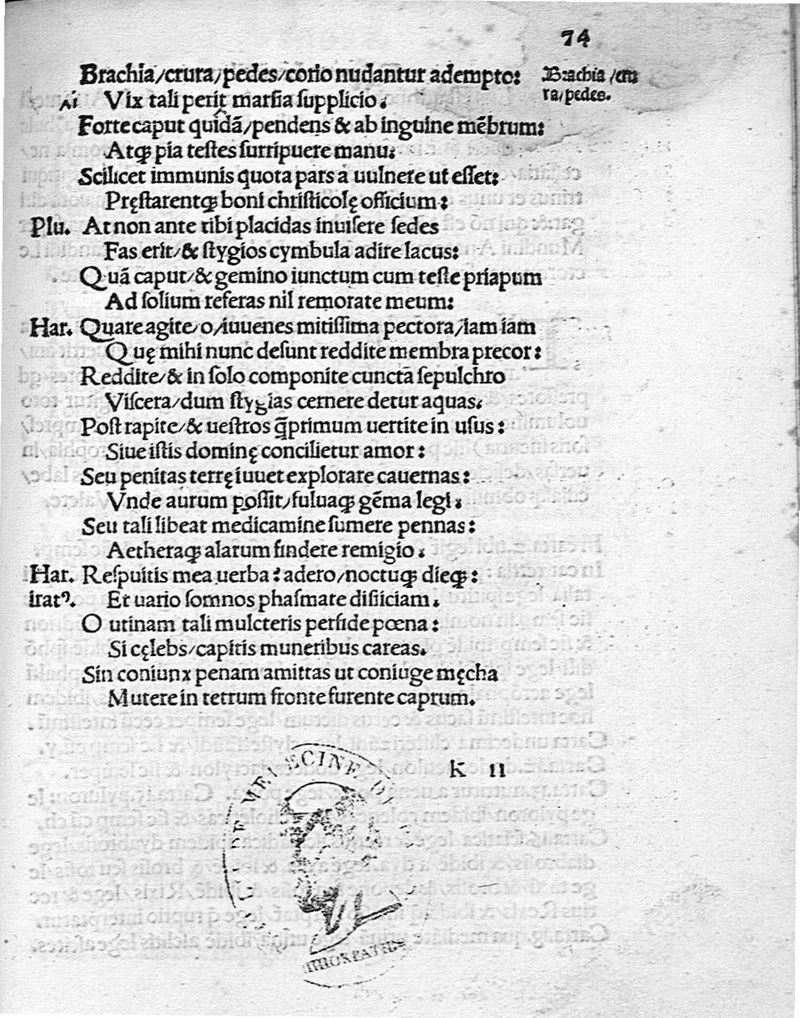 74
Brachia/crura/pedes/corio nudantur adempto: Brachia/cru
ra/pedes.
Vix tali periit marsia supplicio.
Forte caput quidā/pendens & ab inguine mēbrum:
Atqꝫ pia testes surripuere manu.
Scilicet immunis quota pars a uulnere ut esset:
Pręstarentqꝫ boni christicolę officium:
Plu. At non ante tibi placidas inuisere sedes
Fas erit/& stygios cymbula adire lacus:
Quā caput/& gemino iunctum cum teste priapum
Ad solium referas nil remorate meum:
Har. Quare agite/o/iuuenes mitissima pectora/iam iam
Quę mihi nunc desunt reddite membra precor:
Reddite/& in solo componite cuncta sepulchro
Viscera/dum stygias cernere detur aquas.
Post rapite/& uestros q̄primum uertite in usus:
Siue istis dominę concilietur amor:
Seu penitas terrę iuuet explorare cauernas:
Vnde aurum possit/fuluaqꝫ gēma legi.
Seu tali libeat medicamine sumere pennas:
Aetheraqꝫ alarum findere remigio.
Har. Respuitis mea uerba: adero/noctuqꝫ dieqꝫ:
iratꝰ. Et uario somnos phasmate disiiciam.
O utinam tali mulcteris perfide pœna:
Si cęlebs/capitis muneribus careas.
Sin coniunx penam amittas ut coniuge męcha
Mutere in tetrum fronte furente caprum.
K II
DE MEDECINE DE
HIPPOKRATHS